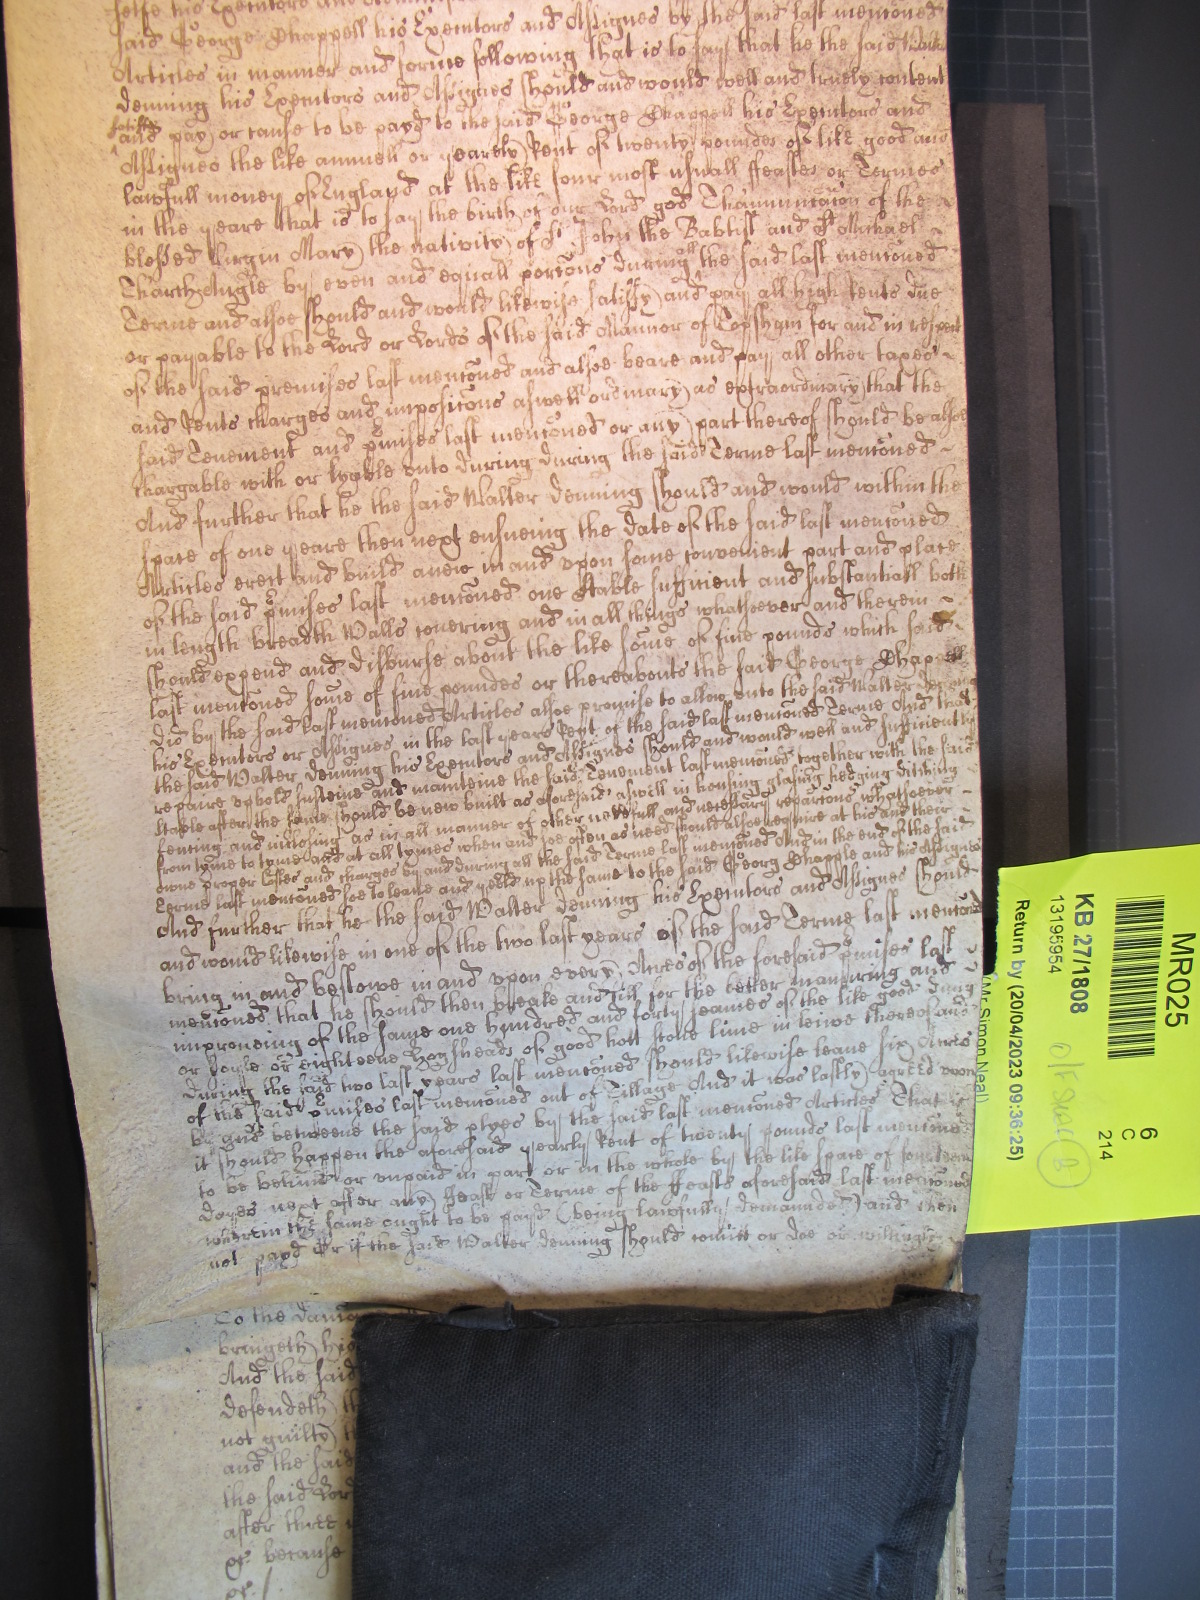 selfe his Executors and
said George Chappell his Executors and Assignes by the said last mencioned
Articles in manner and forme following that is to say that he the said Walter
Denning his Executors and Assignes should and would well and truely content
satisfie
and pay or cause to be payd to the said George Chappell his Executors and
Assignes the like annuell or yearely Rent of twenty poundes of like good and
lawfull money of England at the like four most usuall ffeastes or Termes
in the yeare that is to say the birth of our Lord god Thannunciacion of the
blessed virgin Mary the nativity of St. John the Babtist and St Michaell
Tharchangle by even and equall porcons during all the said last mencioned
Terme and alsoe should and would likewise satisfy and pay all high Rents due
or payable to the Lord or Lords of the said Mannor of Topsham for and in respect
of the said premises last mencioned and alsoe beare and pay all other taxes
and Rents charges and imposicons aswell ordinary as extraordinary that the
said Tenement and pmises last mencioned or any part thereof should be alsoe
chargable with or lyable unto during during the said Terme last mencioned
And further that he the said Walter Denning should and would within the
space of one yeare then next ensueing the date of the said last mencioned
Articles erect and build anew in and upon some convenient part and place
of the said pmises last mencioned one Stable sufficient and substantiall both
in length breadth Walls covering and in all things whatsoever and therein
should expend and disburse about the like some of five pounds which said
last mencioned some of five poundes or thereabouts the said George Chappell
did by the said last mencioned Articles alsoe promise to allow unto the said Walter Denning
his Executors or Assignes in the last years Rent of the said last mencioned Terme And that
the said Walter Denning his Executors and Assignes should and would well and sufficiently
repaire uphold susteine and mainteine the said Tenement last mencioned together with the said
Stable after the same should be new built as aforesaid aswell in housing glasing hedging ditching
fencing and inclosing as in all manner of other needfull and necessary reparcons whatsoever
from tyme to tyme and at all tymes when and soe often as need should alsoe require at his and their
owne proper Costes and charges by and during all the said Terme last mencioned And in the end of the said
Terme last mencioned soe to leave and yeeld up the same to the said Georg Chapple and his Assignes
And further that he the said Walter Denning his Executors and Assignes should
and would likewise in one of the two last years of the said Terme last mencioned
bring in and bestowe in and upon every Acres of the foresaid pmises last
mencioned that he should then breake and Till for the better manuring and
improveing of the same one hundred and forty seames of the like good dung
or soyle or eighteene hogsheads of good hott stone lime in leiwe thereof and
during the said two last years last mencioned should likewise leave six Acres
of the said pmises last mencioned out of Tillage And it was lastly agreed upon
by and betweene the said ptyes by the said last mencioned Articles That if
it should happen the aforesaid yearly Rent of twenty pounds last mencioned
to be behind or unpaid in part or in the whole by the like space of fourteen
dayes next after any ffeast or Terme of the ffeasts aforesaid last mencioned
wherein the same ought to be payd (being lawfully demannded) and then
not payd Or if the said Walter Denning should comitt or doe or willingly
To the
bringeth his
And the said
defendeth
not guilty
and the said
the said Lord
after three
qr. because
qr. /
MR025
KB 27/1808
13195954
6
C
214
(Mr Simon Neal)
Return by (20/04/2023 09:36:25)